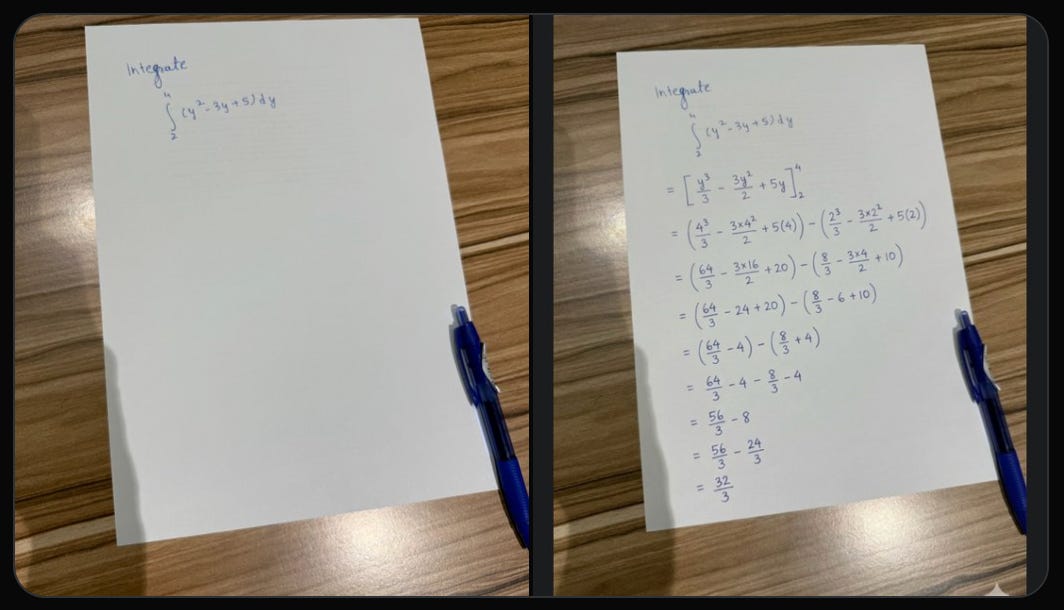 Integrate
∫₂⁴ (y² - 3y + 5) dy
Integrate
∫₂⁴ (y² - 3y + 5) dy
= [y³/3 - 3y²/2 + 5y]₂⁴
= (4³/3 - 3×4²/2 + 5(4)) - (2³/3 - 3×2²/2 + 5(2))
= (64/3 - 3×16/2 + 20) - (8/3 - 3×4/2 + 10)
= (64/3 - 24 + 20) - (8/3 - 6 + 10)
= (64/3 - 4) - (8/3 + 4)
= 64/3 - 4 - 8/3 - 4
= 56/3 - 8
= 56/3 - 24/3
= 32/3